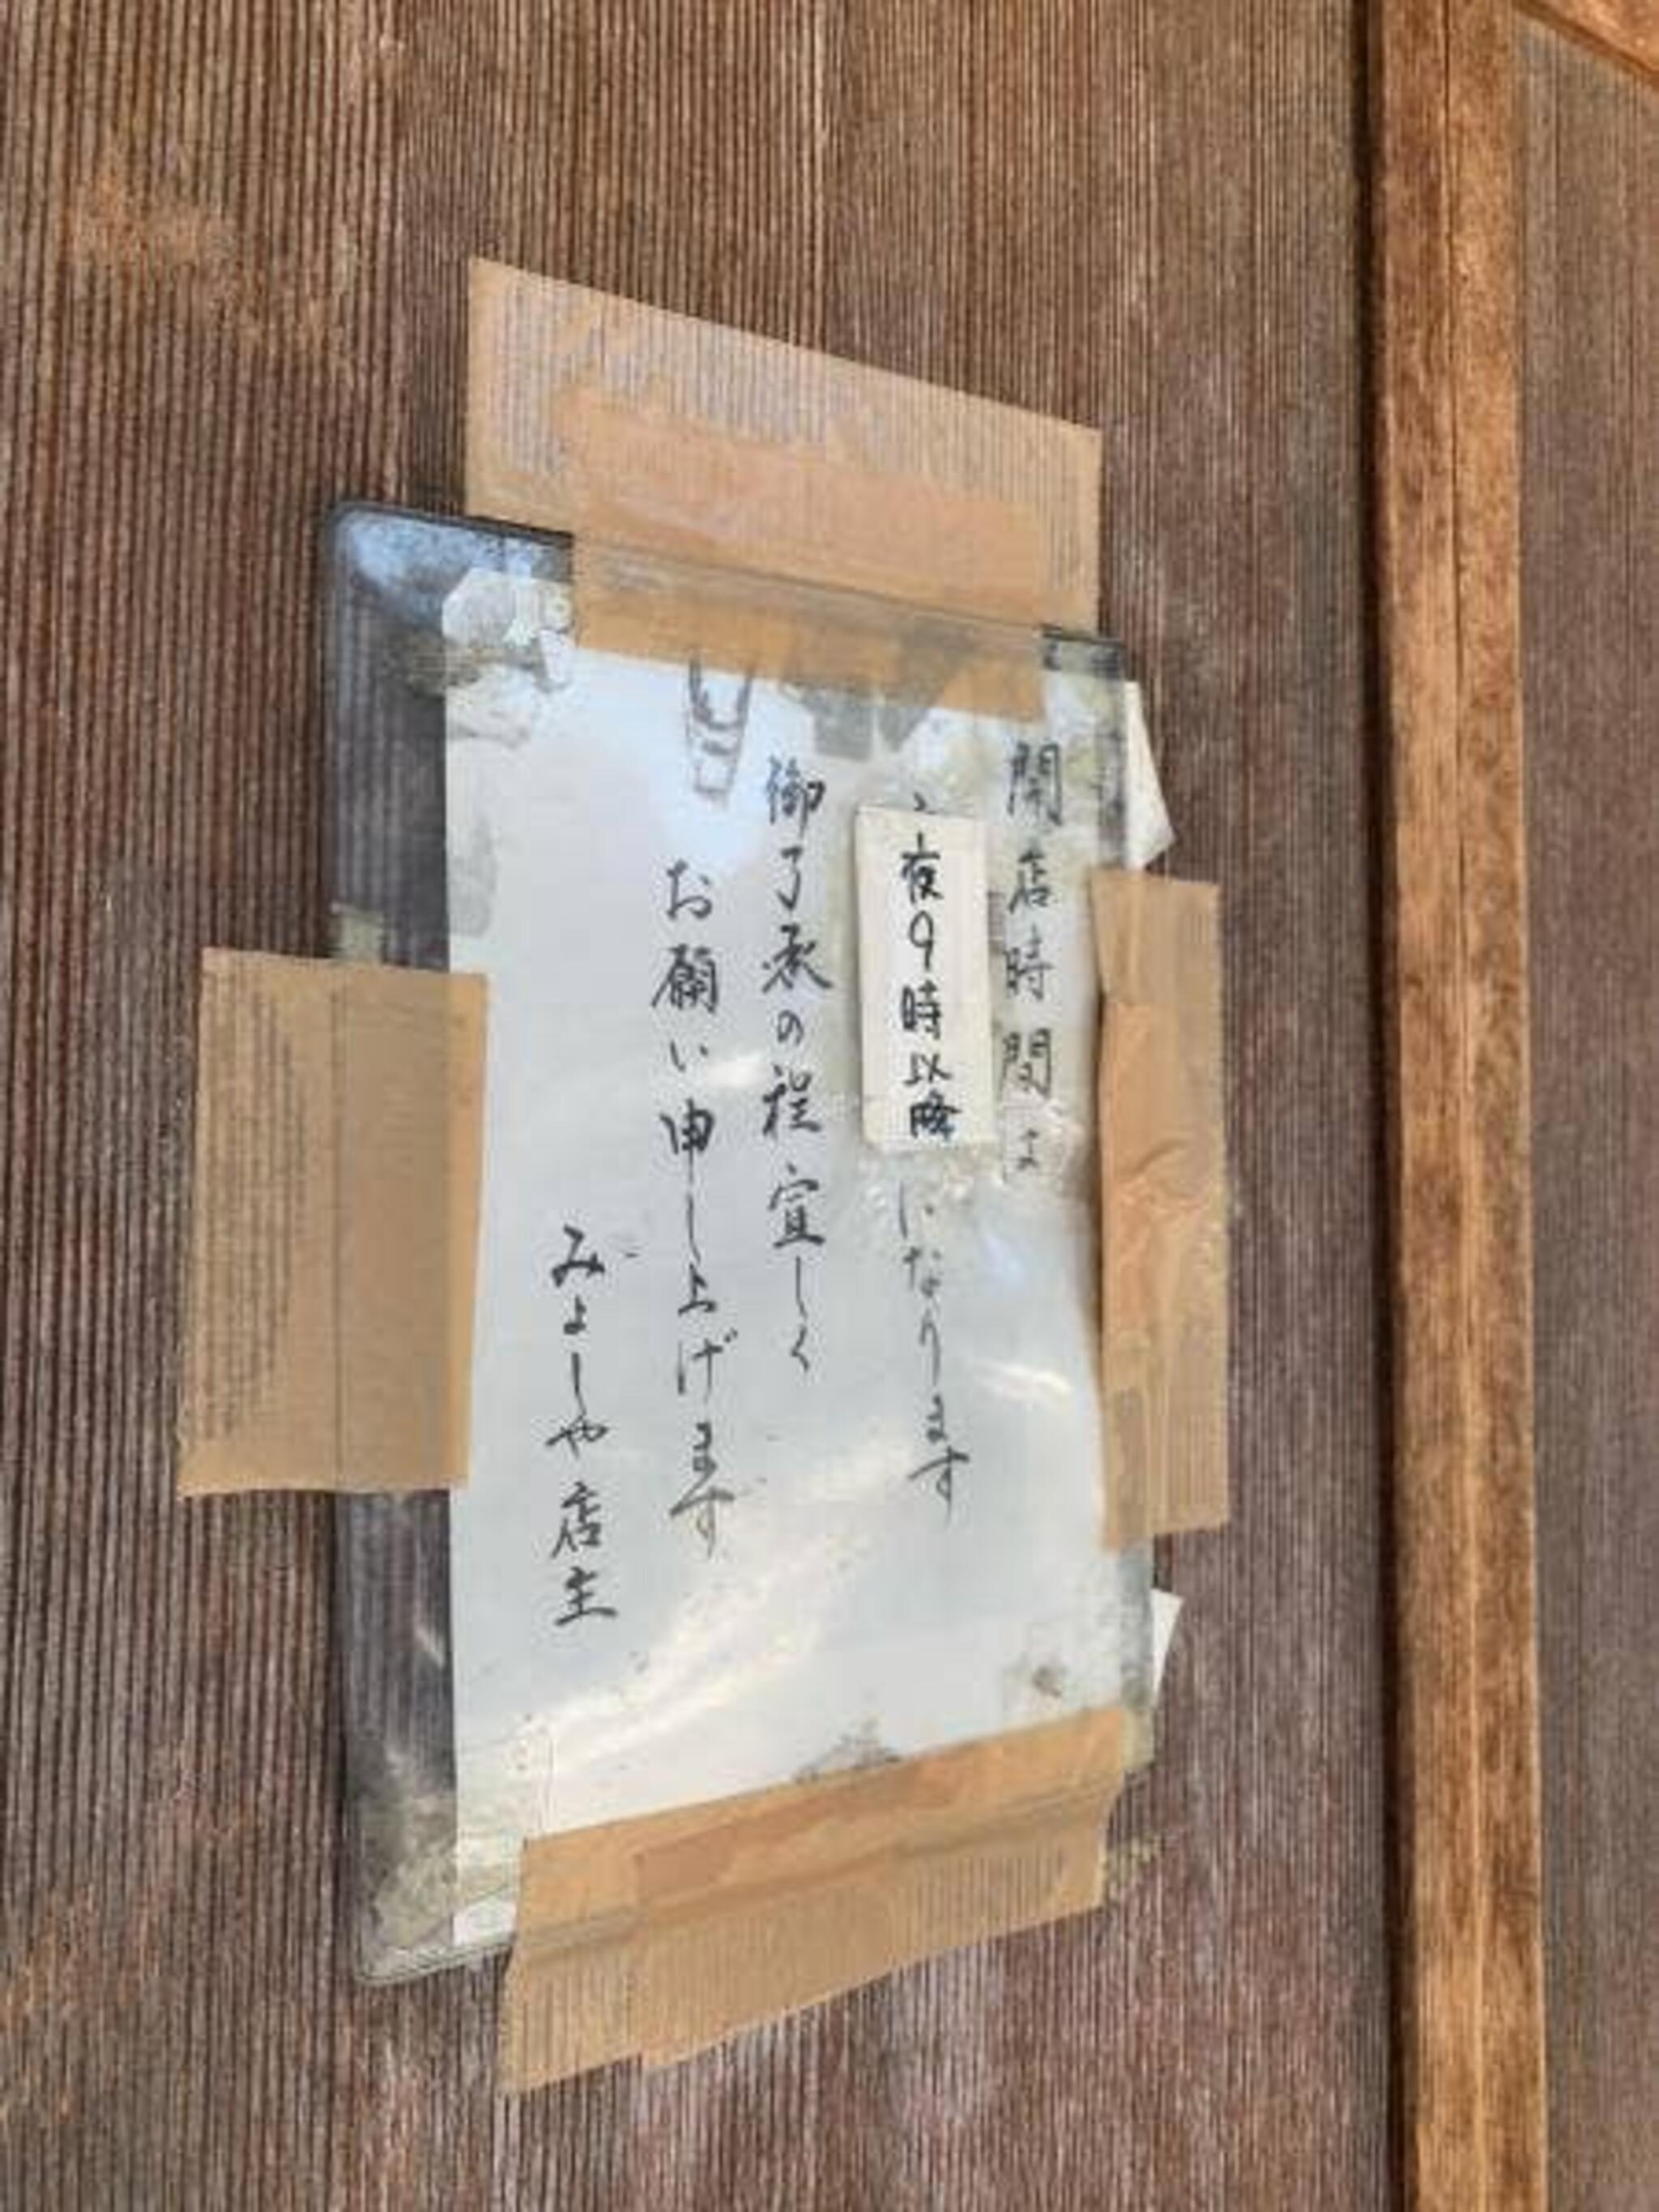 開店時間は
夜9時以降
になります
御了承の程宜しく
お願い申し上げます
みよしや店主